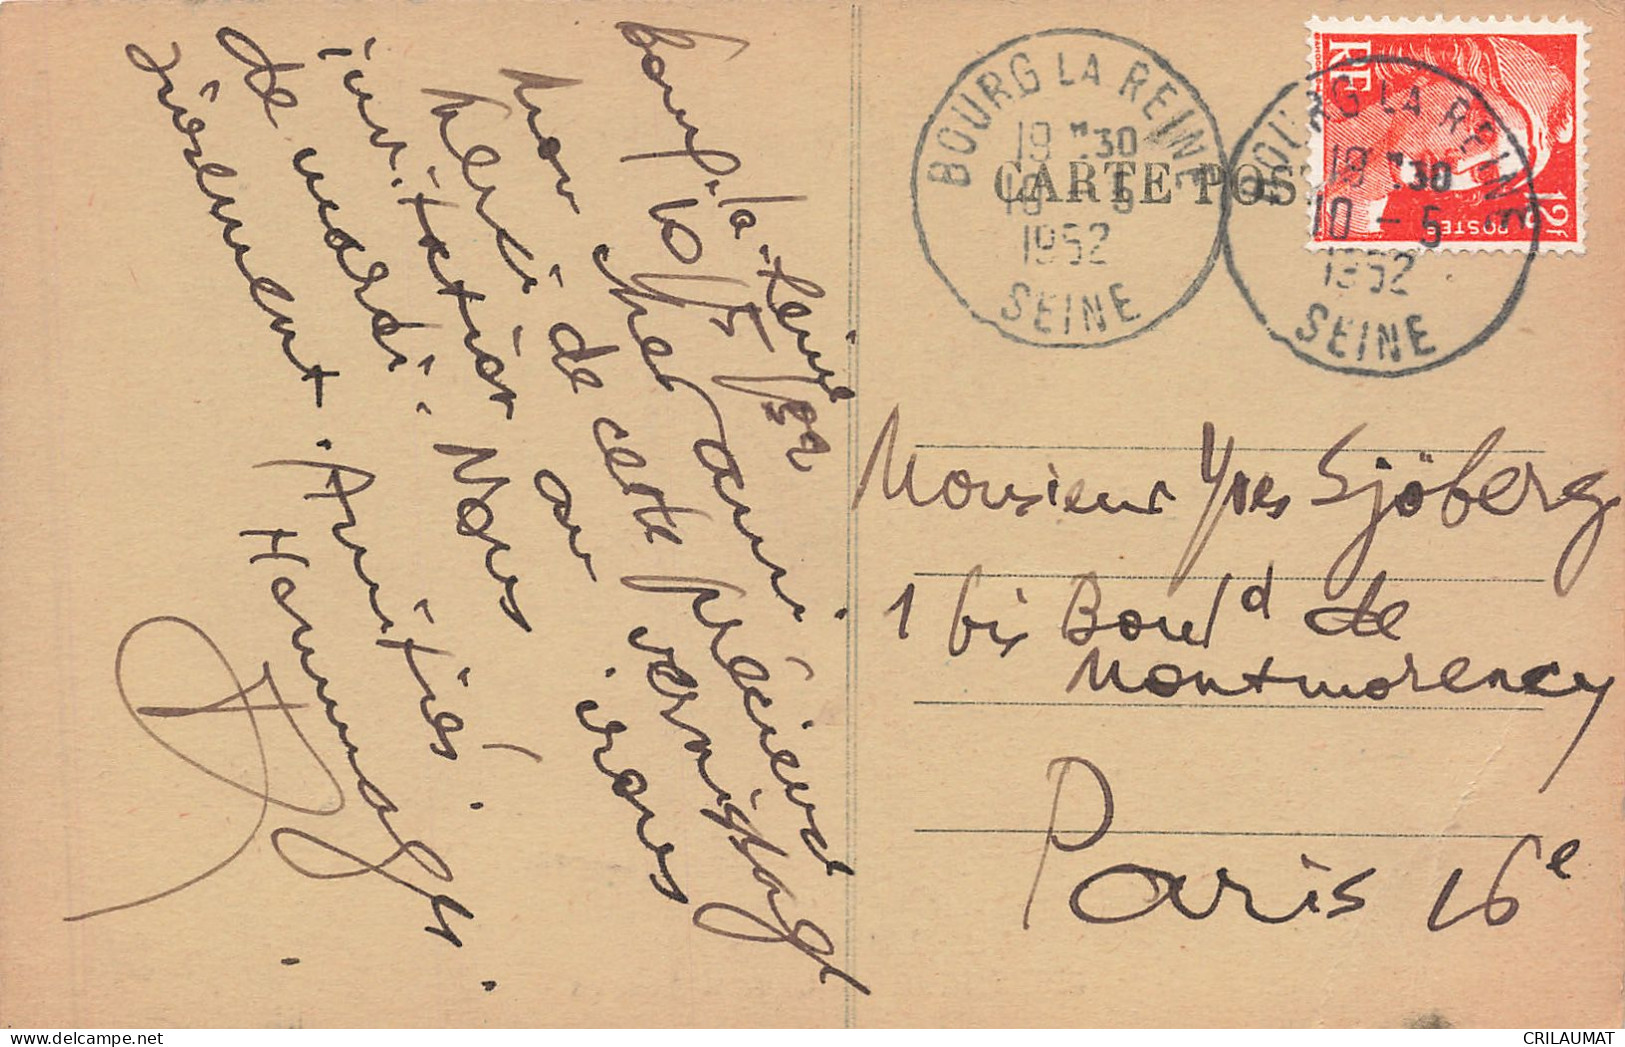 Bourg-la-Reine
10/5/52
Mon cher ami.
Merci de cette précieuse
invitation au vernissage
de mardi. Nous irons
joyeusement. Amitiés.
CARTE POS
BOURG LA REINE
19 H 30
10 - 5
1952
SEINE
BOURG LA REINE
19 H 30
10 - 5
1952
SEINE
RF
POSTES
12F
Monsieur Yves Sjöberg
1 bis Boul^d de
Montmorency
Paris 16e
CRILAUMAT